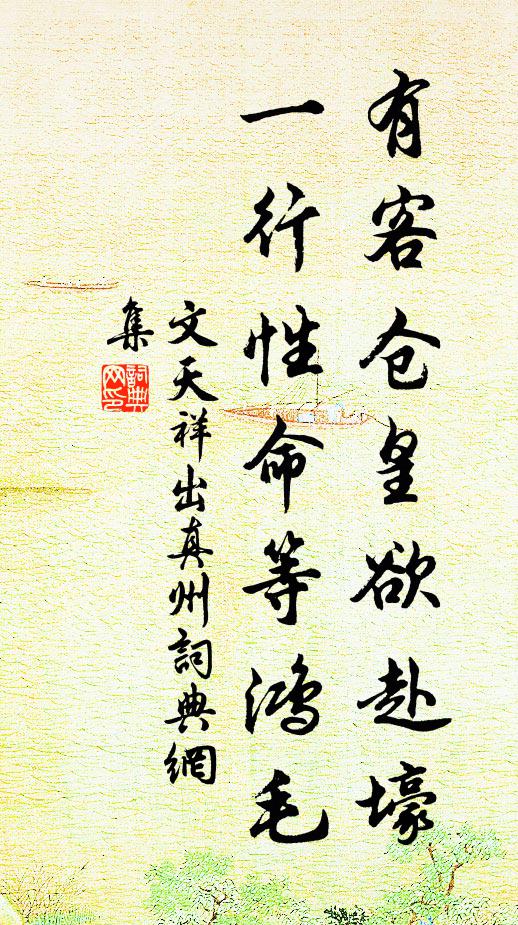 有客仓皇欲赴壕
一行性命等鸿毛
文天祥出真州詞典網
集
詞典
网印